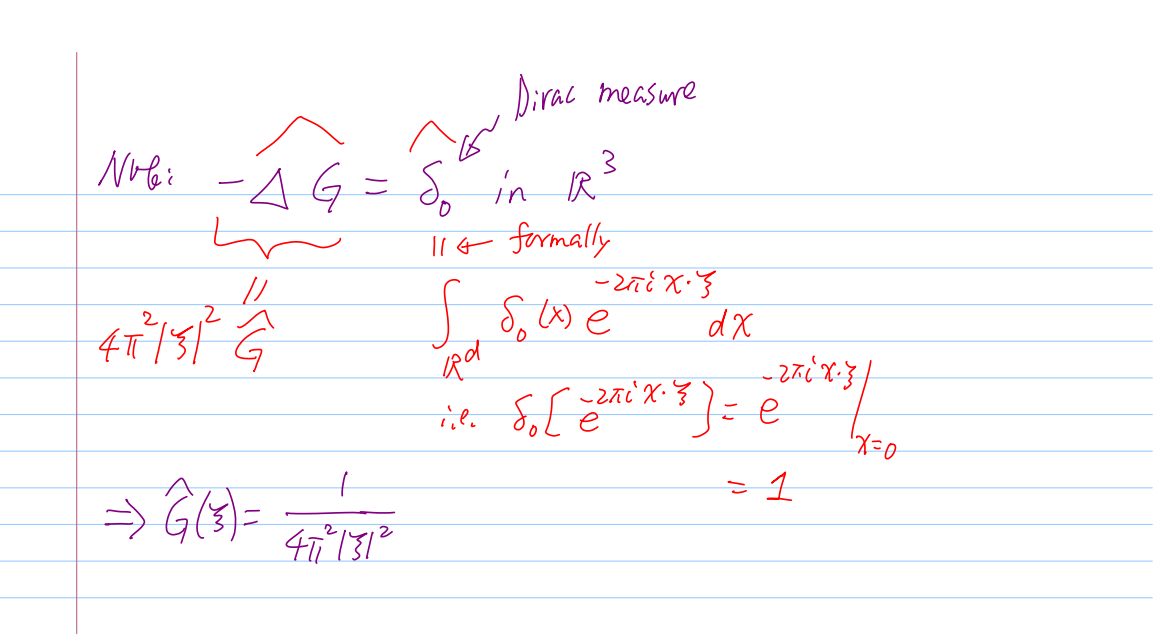 Dirac measure
Note: -Δ G = δ₀ in ℝ³
|| ← formally
4π²|ξ|² Ĝ
∫_{ℝᵈ} δ₀(x) e^{-2πi x·ξ} dx
i.e. δ₀[e^{-2πi x·ξ}] = e^{-2πi x·ξ}|_{x=0}
= 1
⇒ Ĝ(ξ) = 1/(4π²|ξ|²)